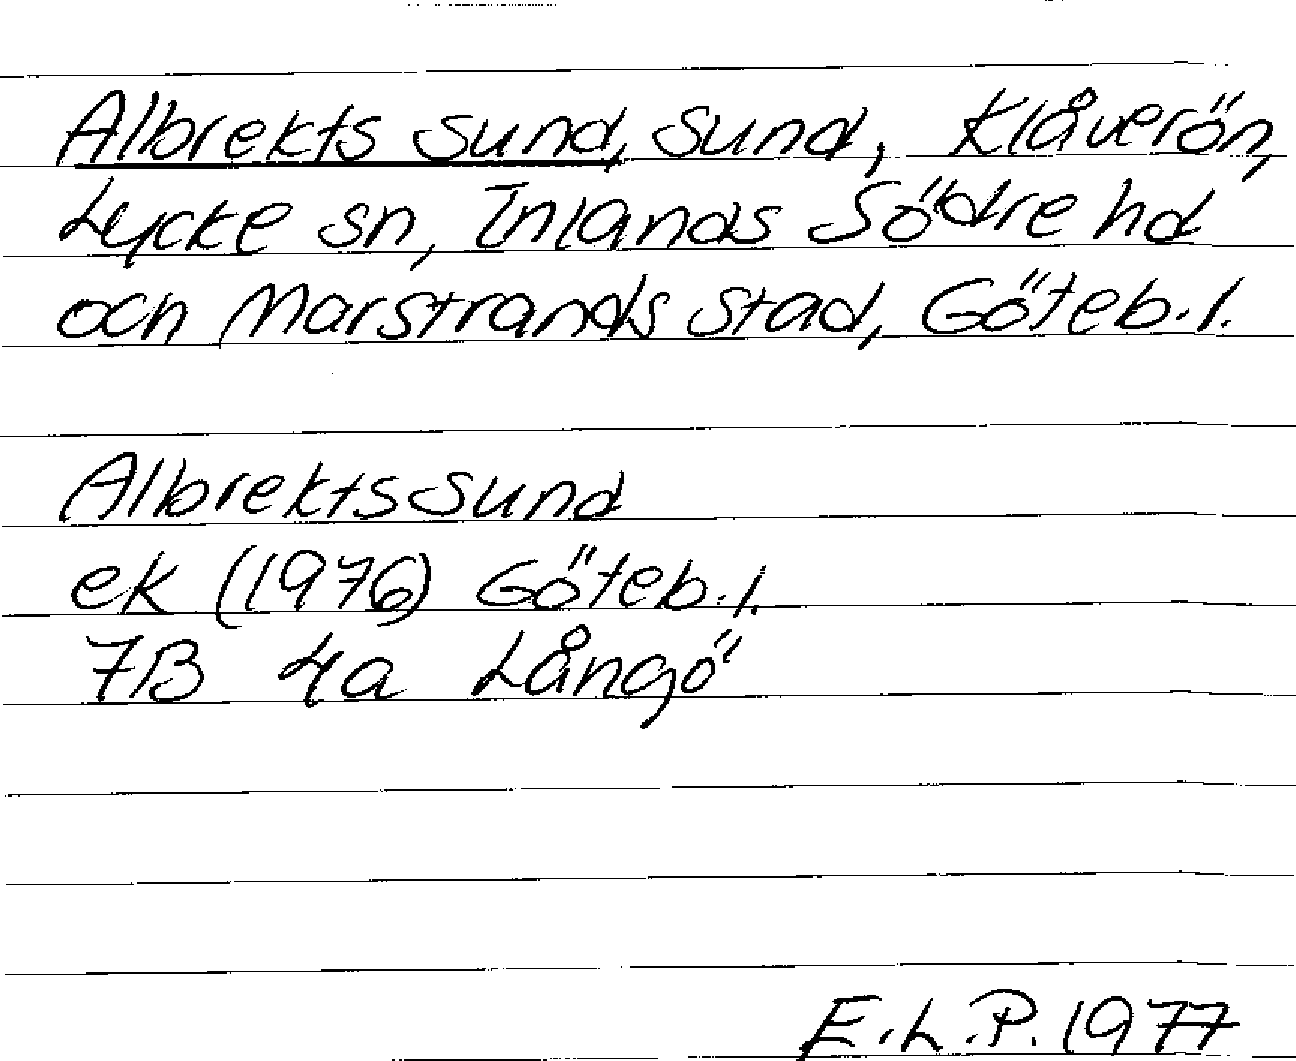 Albrekts sund, sund, Klåverön,
Lycke sn, Inlands Södre hd
och Marstrands stad, Göteb.l.
Albrektssund
ek (1976) Göteb.l.
7B 4a Långö
E.L.P. 1977